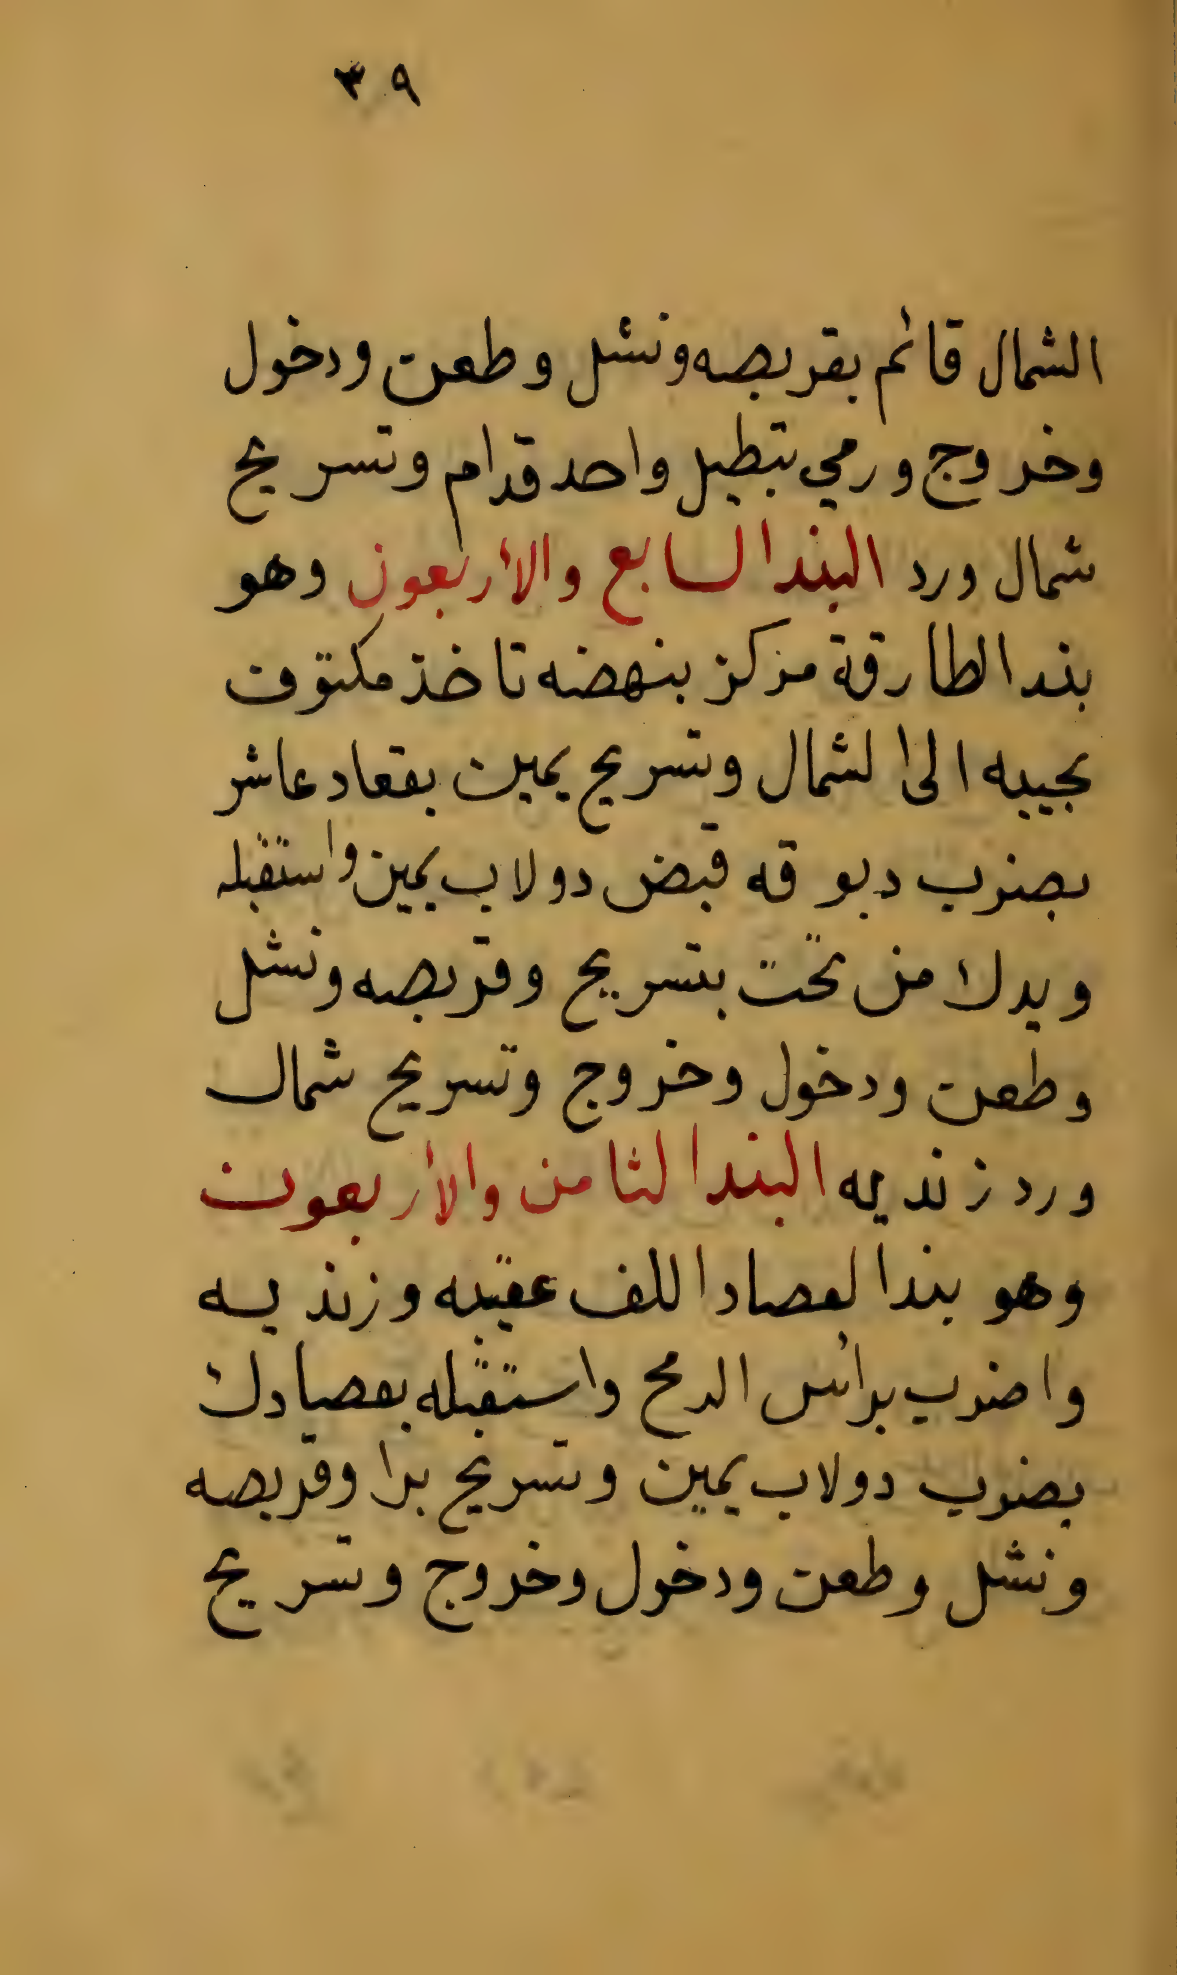 ٣٩
الشمال قائم بقربصه ونشل وطعن ودخول
وخروج ورمي بتطيل واحد قدام وتسريح
شمال ورد البند السابع والاربعون وهو
بند الطارقة مركز بنهضه تاخذ مكتوف
بجيبه الى الشمال وتسريح يمين بقعاد عاشر
بضرب دبوقه قبض دولاب يمين واستقبله
ويدك من تحت بتسريح وقربصه ونشل
وطعن ودخول وخروج وتسريح شمال
ورد زنديه البند الثامن والأربعون
وهو بند العصادا للف عقيبه وزنديه
واضرب برأس الرمح واستقبله بعصادك
بضرب دولاب يمين وتسريح برا وقربصه
ونشل وطعن ودخول وخروج وتسريح